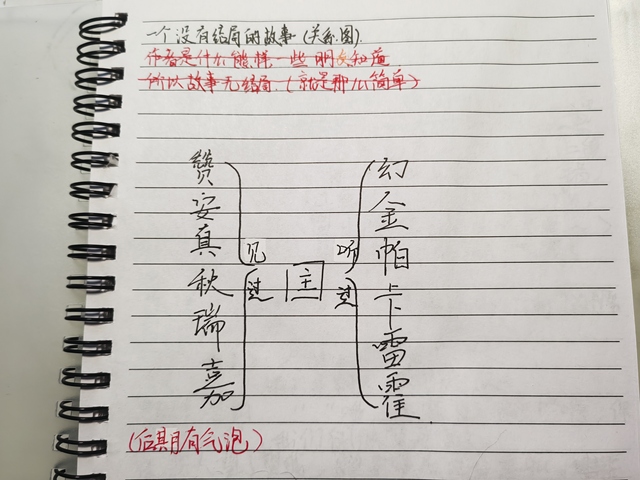 一个没有结局的故事(关系图)
作者是什么能样一些朋友知道
所以故事无结局.(就是那么简单)
赞
安
真
秋
瑞
嘉
见
过
主
听
过
幻
金
帕
卡
雷
霍
(后期有气泡)